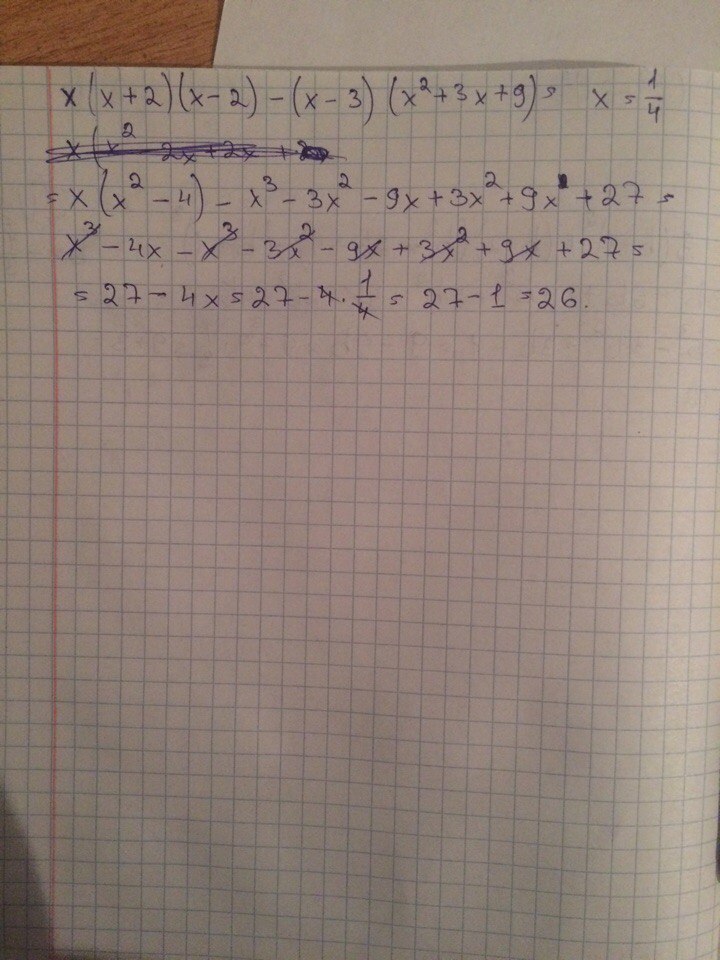 x(x+2)(x-2)-(x-3)(x²+3x+9)= x=1/4
x(x² 2x+2x+
=x(x²-4)-x³-3x²-9x+3x²+9x+27=
x³-4x-x³-3x²-9x+3x²+9x+27=
=27-4x=27-4·1/4=27-1=26.